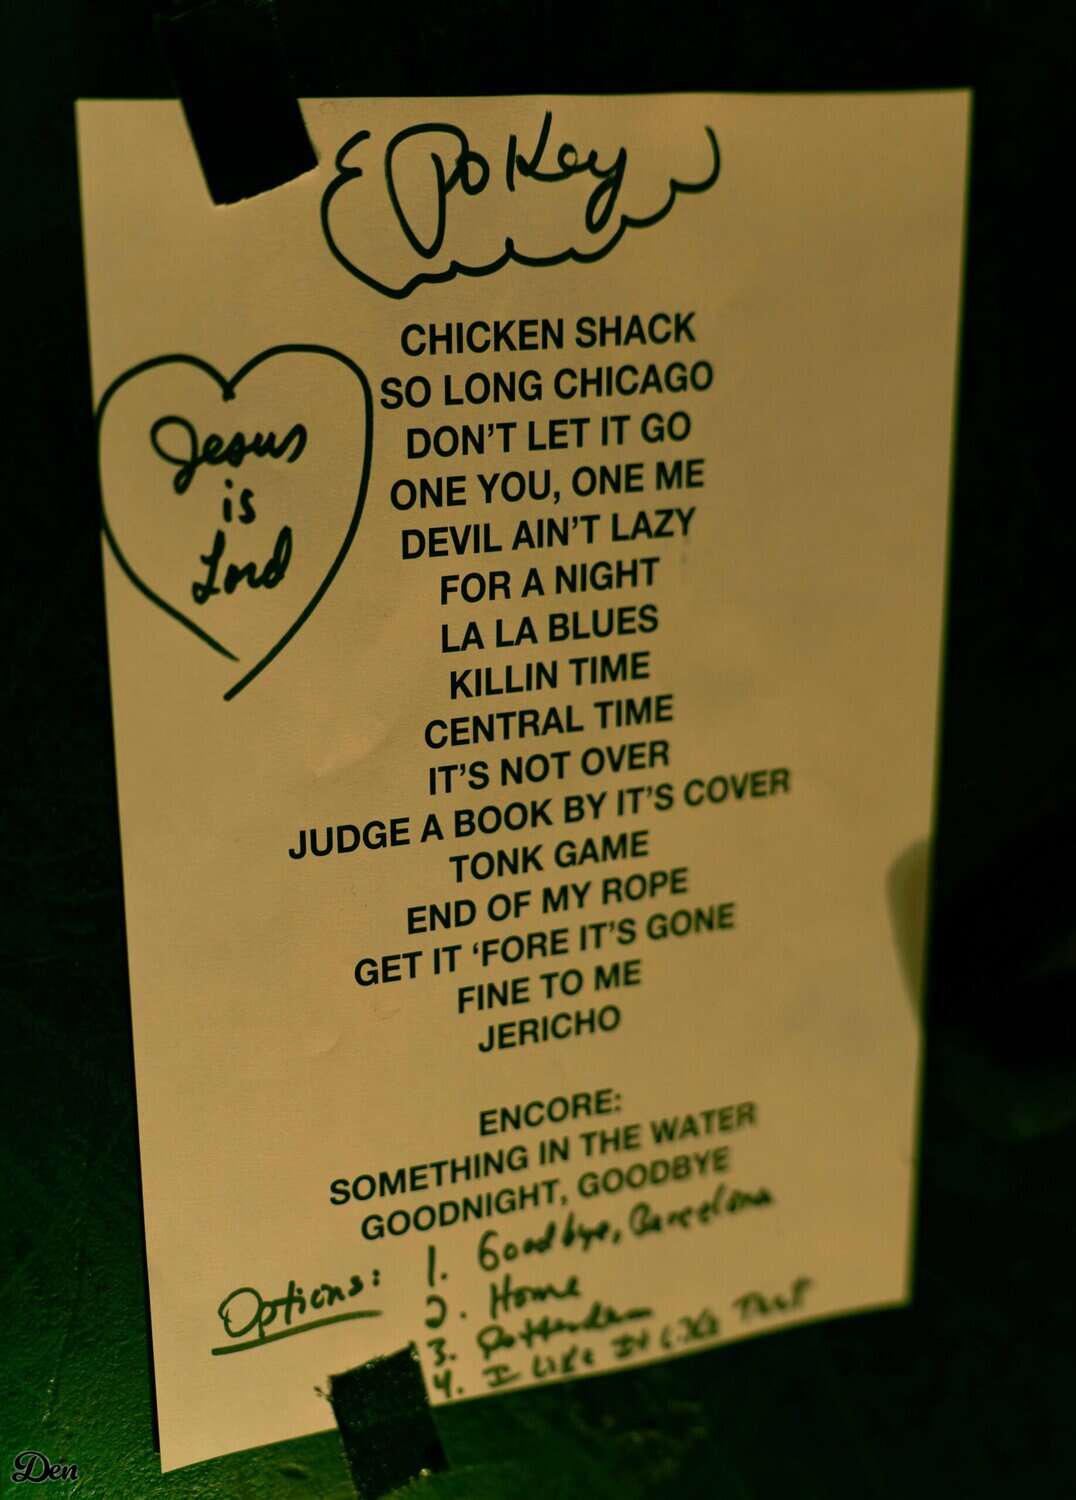 Pokey
CHICKEN SHACK
SO LONG CHICAGO
DON'T LET IT GO
ONE YOU, ONE ME
DEVIL AIN'T LAZY
FOR A NIGHT
LA LA BLUES
KILLIN TIME
CENTRAL TIME
IT'S NOT OVER
JUDGE A BOOK BY IT'S COVER
TONK GAME
END OF MY ROPE
GET IT ‘FORE IT'S GONE
FINE TO ME
JERICHO
Jesus
is
Lord
ENCORE:
SOMETHING IN THE WATER
GOODNIGHT, GOODBYE
Options: 1. Goodbye, Barcelona
2. Home
3. Rotterdam
4. I Like It Like That
Den